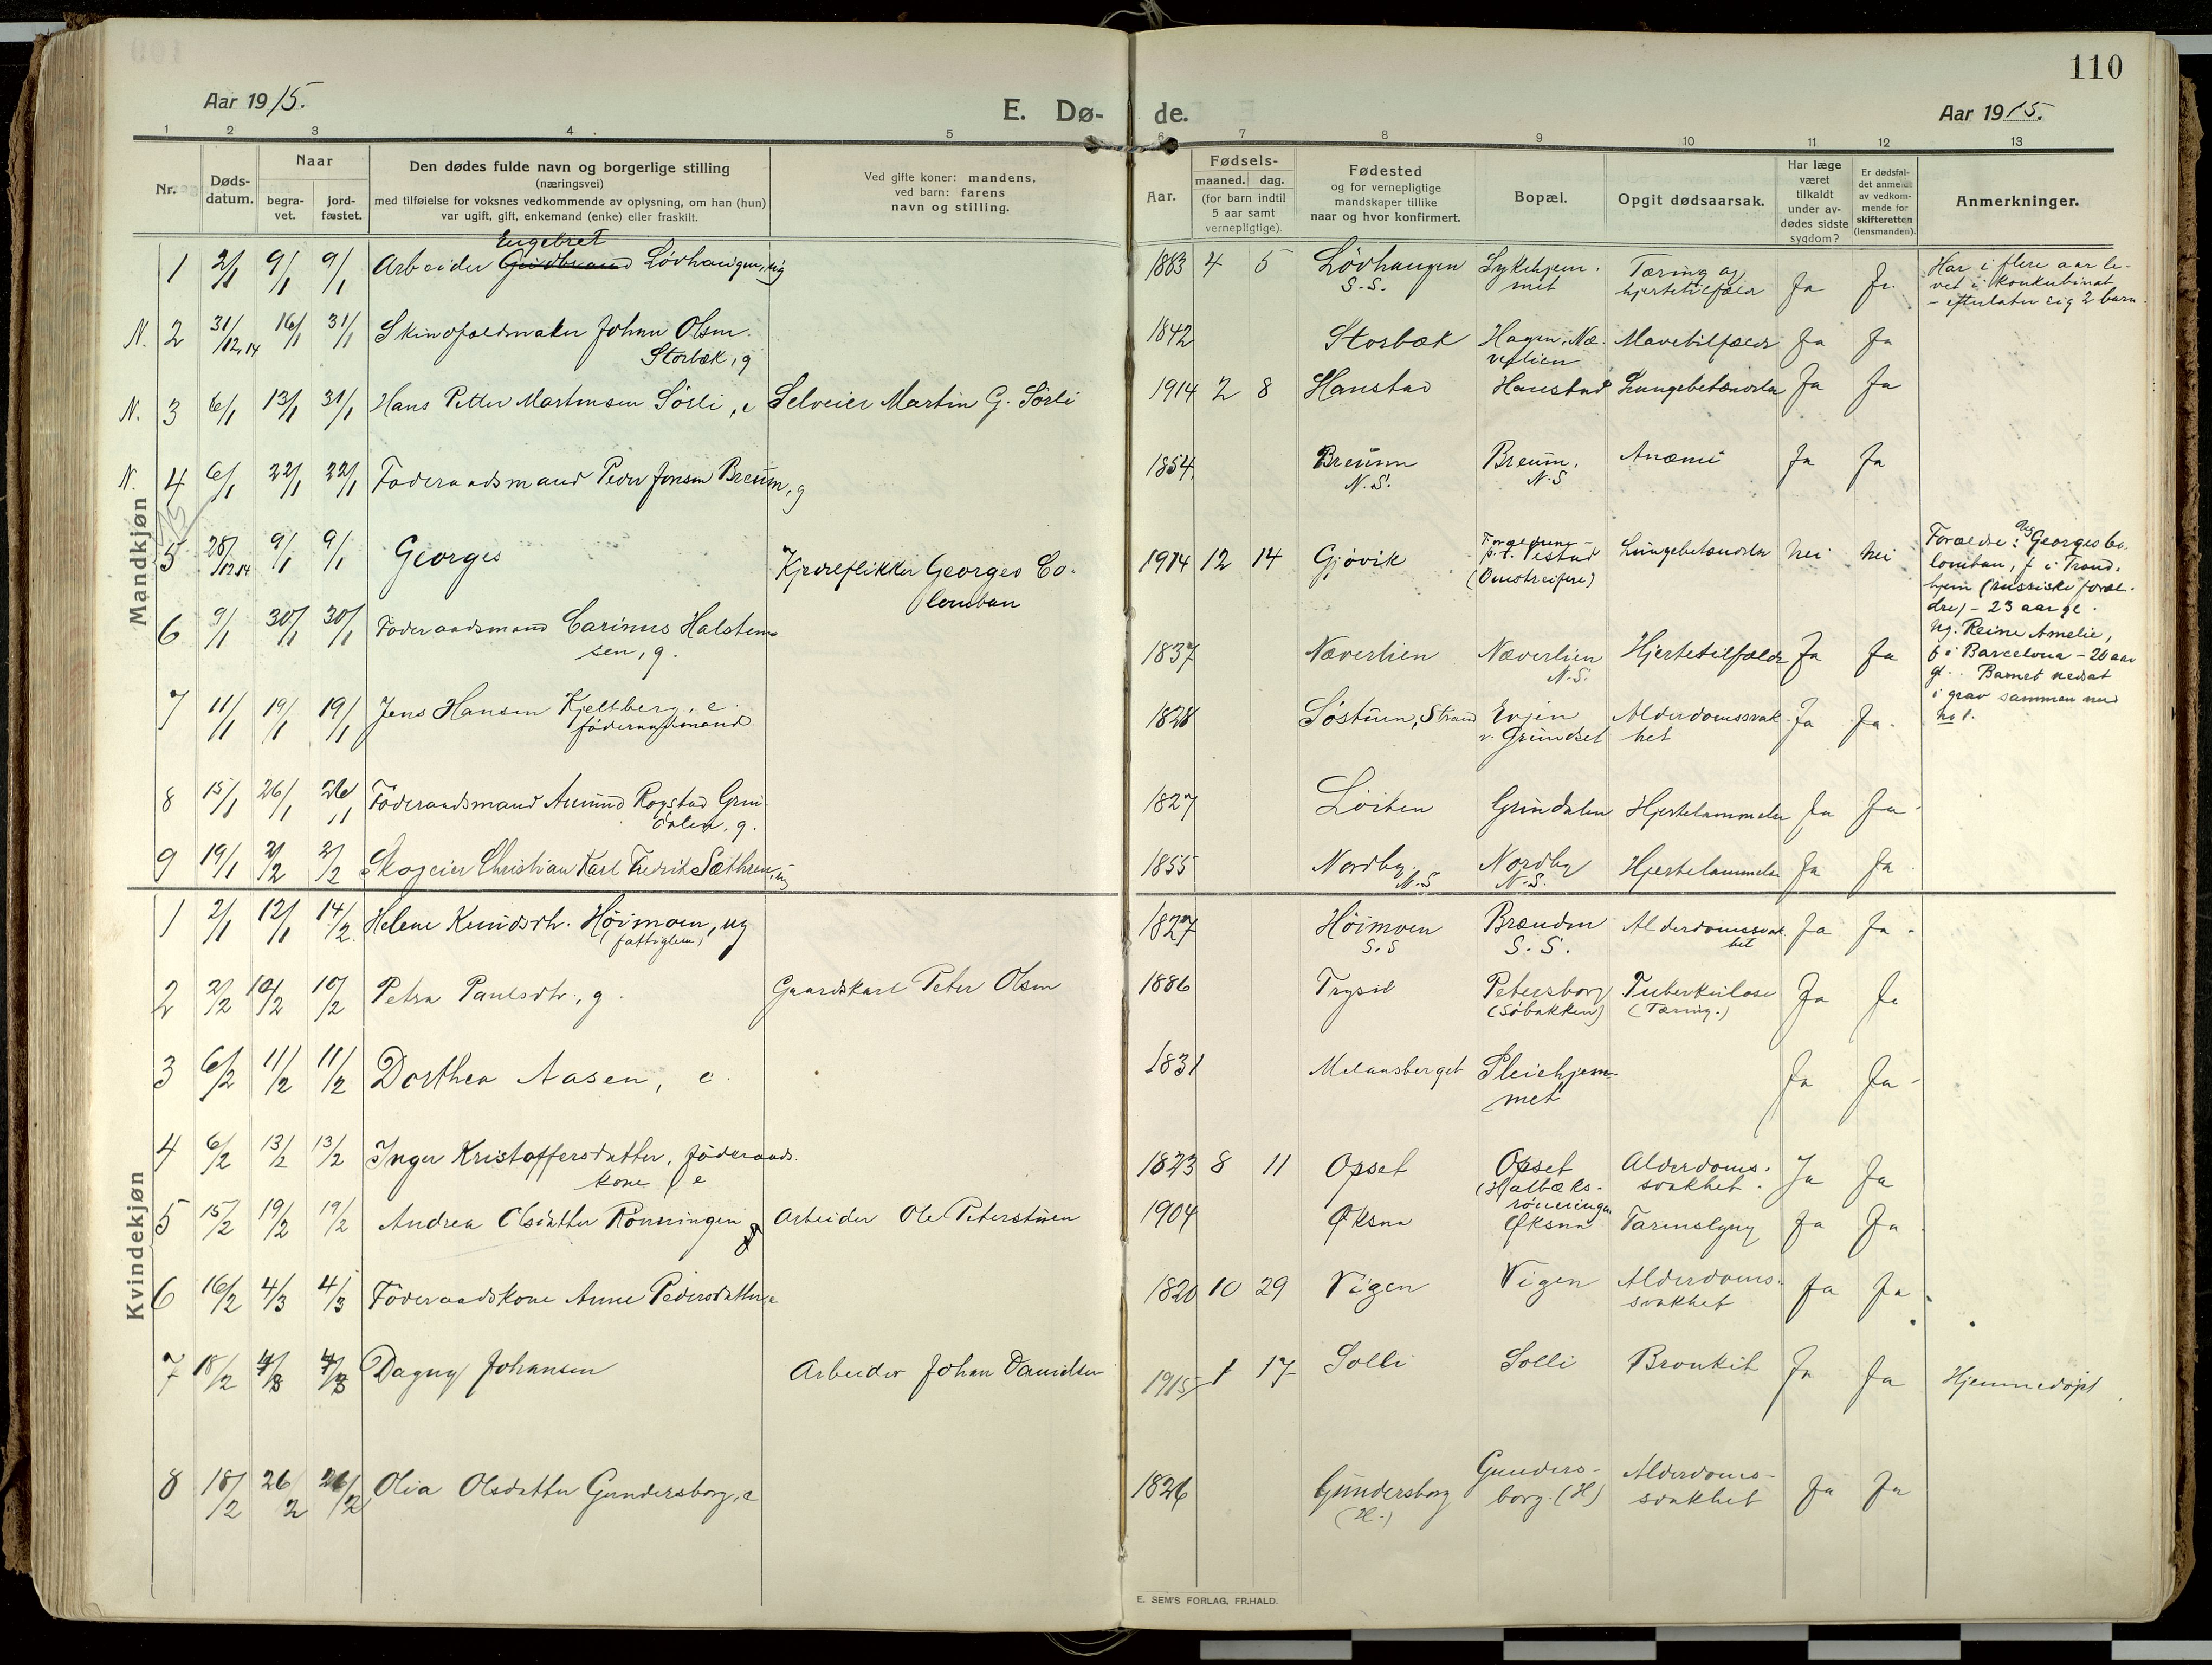 110
Aar 1915.
E. Dø- de.
Aar 1915.
1 2 3 4 5 6 7 8 9 10 11 12 13
Nr.
Døds-
datum.
Naar
begra-
vet.
jord-
fæstet.
Den dødes fulde navn og borgerlige stilling
(næringsvei)
med tilføielse for voksnes vedkommende av oplysning, om han (hun)
var ugift, gift, enkemand (enke) eller fraskilt.
Ved gifte koner: mandens,
ved barn: farens
navn og stilling.
Aar.
Fødsels-
maaned. dag.
(for barn indtil
5 aar samt
vernepligtige)
Fødested
og for vernepligtige
mandskaper tillike
naar og hvor konfirmert.
Bopæl.
Opgit dødsaarsak.
Har læge
været
tilkaldt
under av-
dødes sidste
sygdom?
Er dødsfal-
det anmeldt
av vedkom-
mende for
skifteretten
(lensmanden).
Anmerkninger.
Mandkjøn
Engebret
1 2/1 9/1 9/1 Arbeider Gudbrand Lövhaugen, ug 1883 4 5 Lövhaugen Sykehjem- Tæring og Ja Ja Har i flere aar le-
S.S. met hjertetilfælde vet i konkubinat
- efterlater sig 2 barn.
N. 2 31/12.14 16/1 31/1 Skindfeldmaker Johan Olsen 1842 Storbæk Hagen, Næ- Mavetilfælde Ja Ja
Storbæk, g verlien
N. 3 6/1 13/1 31/1 Hans Petter Martinsen Sörli, e Selveier Martin G. Sörli 1914 2 8 Hanstad Hanstad Lungebetændelse Ja Ja
N. 4 6/1 22/1 22/1 Föderaadsmand Peder Jonsen Breum, g 1854 Breum Breum. Anæmi Ja Ja
N.S. N.S
5 28/12.14 9/1 9/1 Georges Kjedelflikker Georges Co- 1914 12 14 Gjövik Forældrene - Lungebetændelse Nei Nei
lomban p.t. Vestad
(Omstreifere)
Forældre: Georges Co-
lomban, f i Trond-
hjem (russiske foræl-
dre) - 23 aar gl.
og Reine Amelie,
f i Barcelona - 20 aar
gl. Barnet nedsat
i grav sammen med
no 1.
6 9/1 30/1 30/1 Föderaadsmand Carinus Halsten- 1837 Næverlien Næverlien Hjertetilfælde Ja Ja
sen, g. N.S.
7 11/1 19/1 19/1 Jens Hansen Kjeltberg, e 1828 Söstuen, Strand Evjen Alderdomssvak- Ja Ja.
föderaadsmand v. Grundset het
8 15/1 26/1 26/1 Föderaadsmand Amund Rogstad Grin- 1827 Löiten Grindalen Hjertelammelse Ja Ja
dalen, g.
9 19/1 2/2 2/2 Skogeier Christian Karl Fredrik Sæthren, ug 1855 Nordby Nordby Hjertelammelse Ja Ja
N.S N.S.
Kvindekjøn
1 2/1 12/1 14/2 Helene Knudsdtr. Höimoen, ug 1827 Höimoen Brænden Alderdomssvak- Ja Ja
(fattiglem) S.S S.S. het
2 2/2 10/2 10/2 Petra Paulsdtr., g. Gaardskarl Peter Olsen 1886 Trysil Petersborg Tuberkulose Ja Ja
(Söbakken) (Tæring.)
3 6/2 11/2 11/2 Dorthea Aasen, e 1831 Melaasberget Pleiehjem- Ja Ja
met
4 6/2 13/2 13/2 Inger Kristoffersdatter, föderaads- 1823 8 11 Opset Opset Alderdoms- Ja Ja
kone, e (Halbæks- svakhet.
rönningen
5 15/2 19/2 19/2 Andrea Olsdatter Rönningen Arbeider Ole Peterstuen 1904 Øksna Øksna Tarmslyng Ja Ja
6 16/2 4/3 4/3 Föderaadskone Anne Pedersdatter, e 1820 10 29 Vigen Vigen Alderdoms- Ja Ja
svakhet
7 18/2 4/3 4/3 Dagny Johansen Arbeider Johan Danielsen 1915 1 17 Solli Solli Bronkit Ja Ja Hjemmedöpt
8 18/2 26/2 26/2 Olia Olsdatter Gundersborg, e 1826 Gundersborg Gunders- Alderdoms- Ja Ja
(H.) borg. (H) svakhet
E. SEM'S FORLAG, FR.HALD.